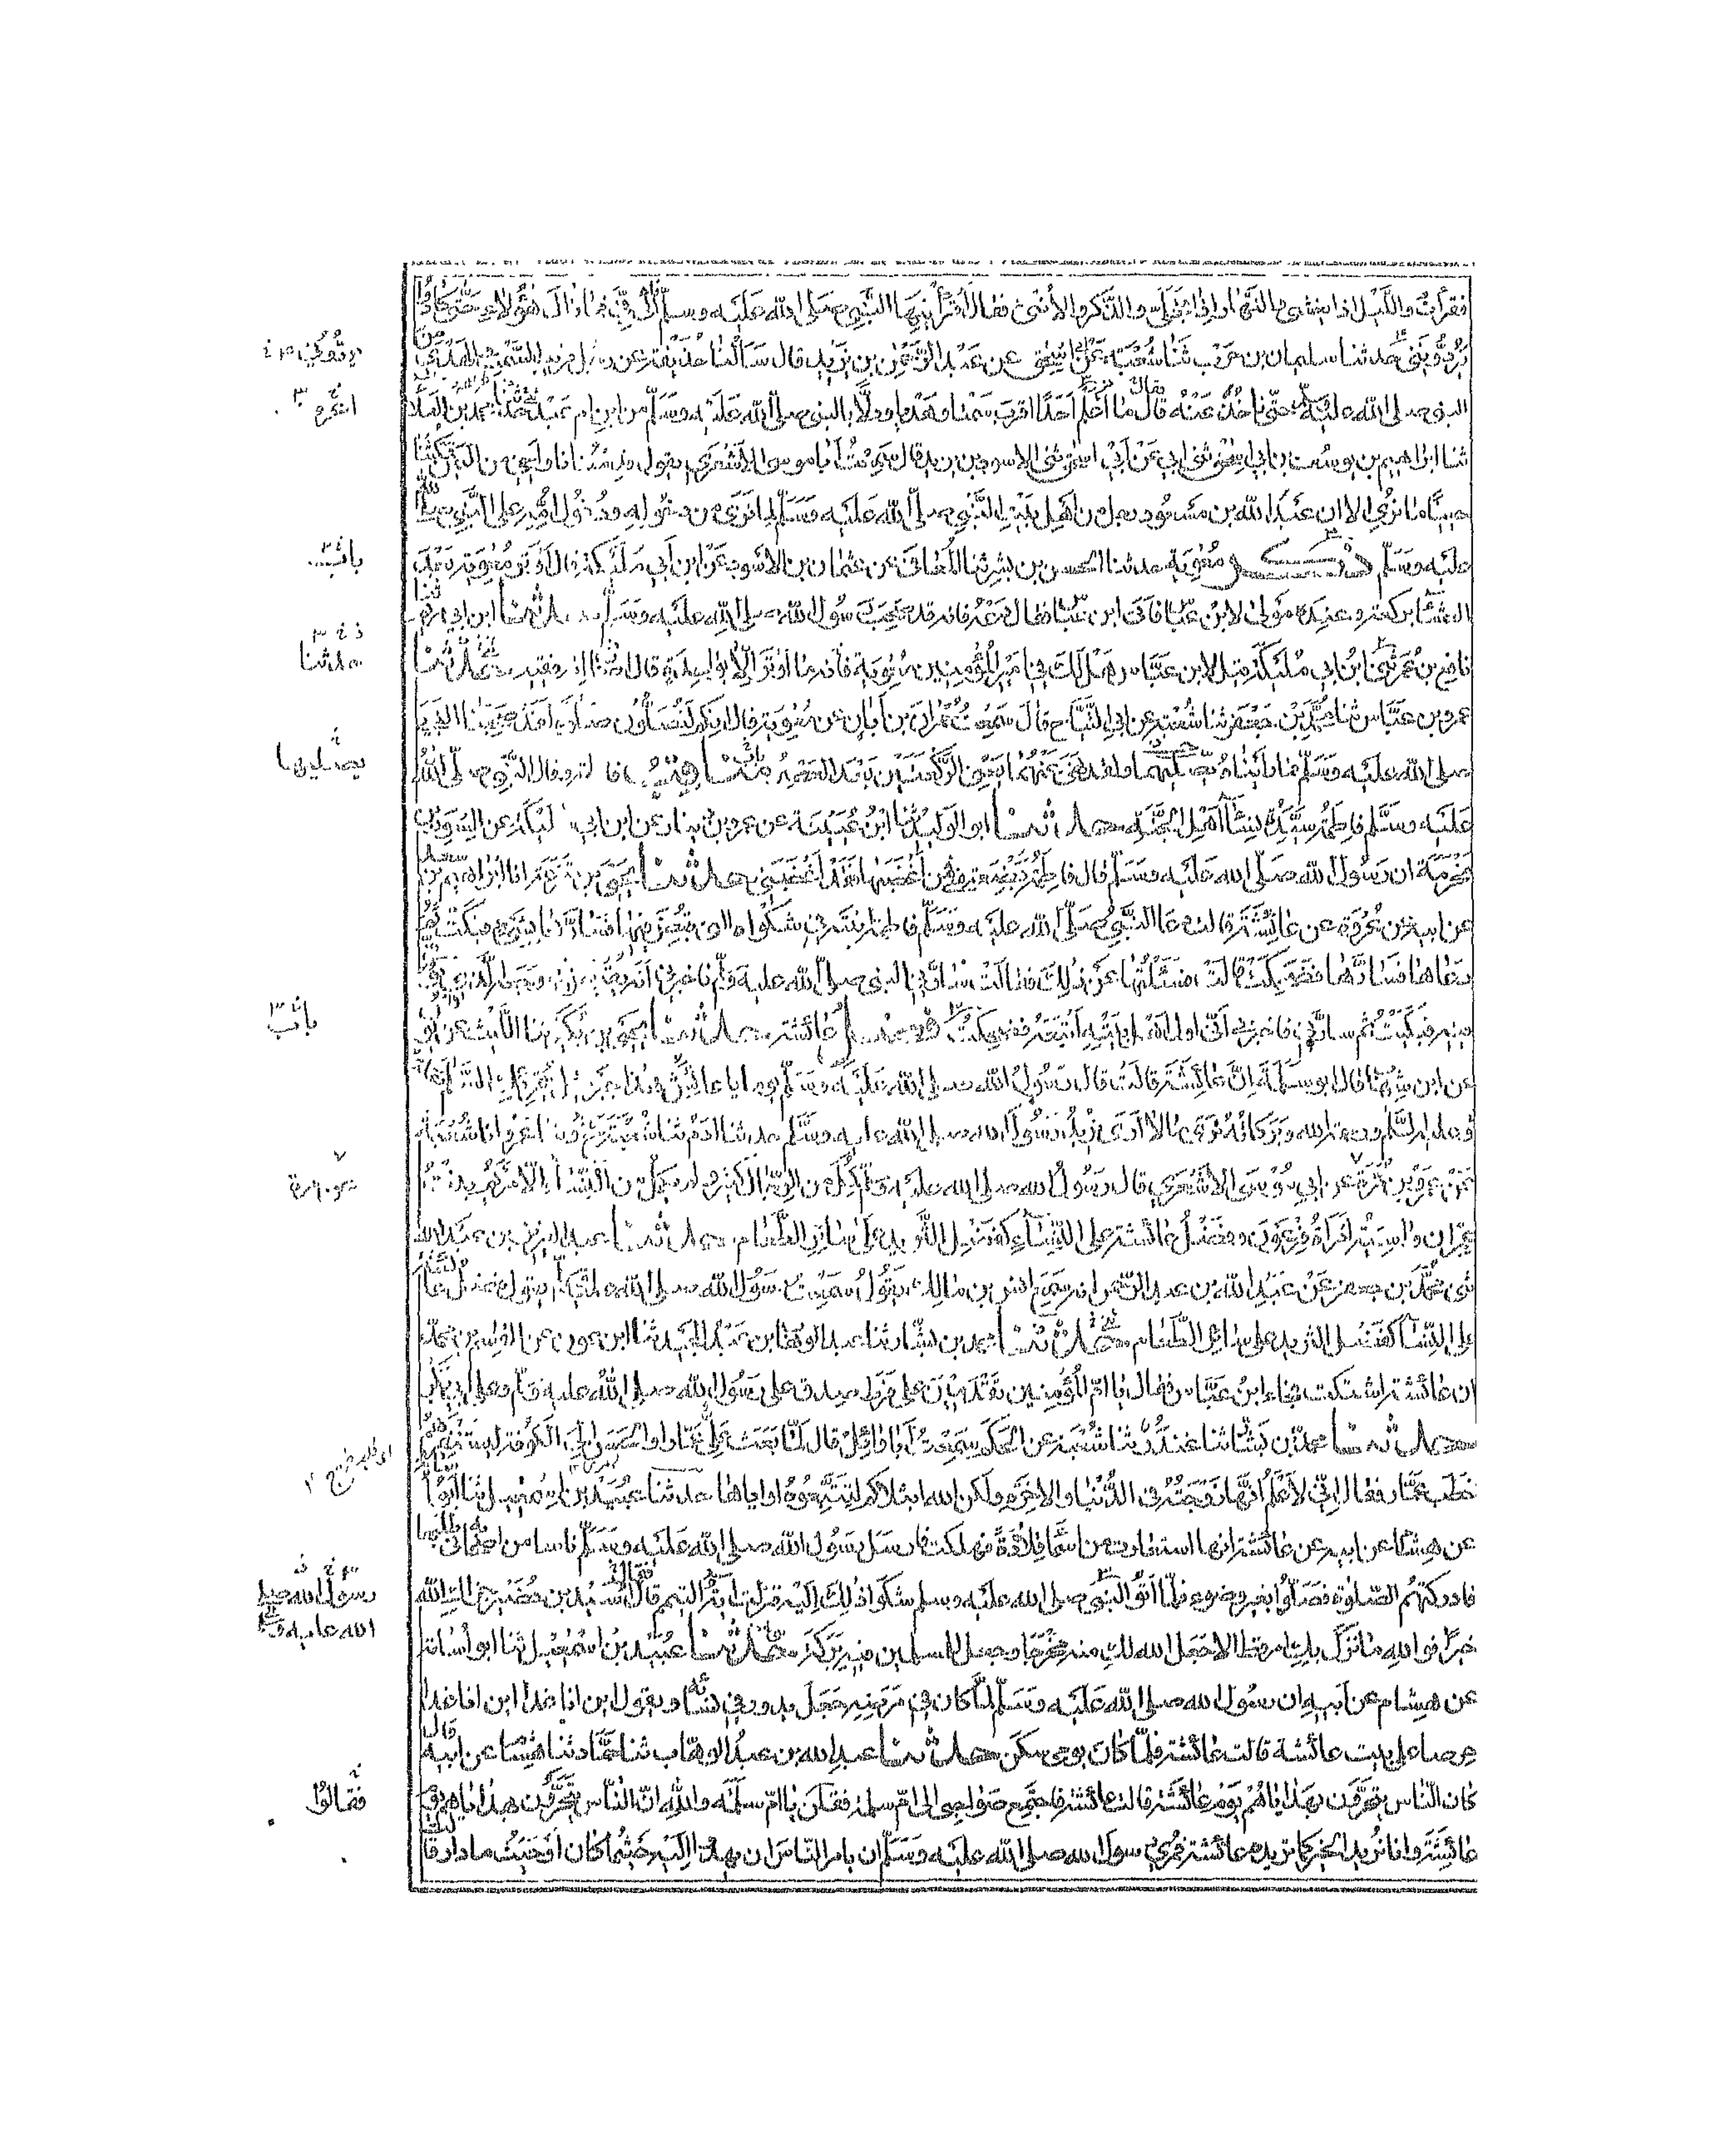 فقرأت والليل اذا يغشى والنهار اذا تجلى والذكر والانثى فقال أقرأنيها النبي صلى الله عليه وسلم فاه الى في فما زال هؤلاء حتى كادوا
يردوني حدثنا سليمان بن حرب ثنا شعبة عن ابي اسحق عن عبد الرحمن بن يزيد قال سألنا حذيفة عن رجل قريب السمت والهدي من
النبي صلى الله عليه وسلم حتى ناخذ عنه فقال ما اعلم احدا اقرب سمتا وهديا ودلا بالنبي صلى الله عليه وسلم من ابن ام عبد حدثنا محمد بن العلاء
ثنا ابراهيم بن يوسف بن ابي اسحق ثني ابي عن أبي اسحق ثني الاسود بن يزيد قال سمعت أبا موسى الاشعري يقول قدمت انا واخي من اليمن فمكثنا
حينا ما نرى الا ان عبد الله بن مسعود رجل من اهل بيت النبي صلى الله عليه وسلم لما نرى من دخوله ودخول امه على النبي صلى الله
عليه وسلم ذكر معوية حدثنا الحسن بن بشر ثنا المعافى عن عثمان بن الاسود عن ابن أبي مليكة قال اوتر معوية بعد
العشاء بركعة وعنده مولى لابن عباس فاتى ابن عباس فقال دعه فانه قد صحب رسول الله صلى الله عليه وسلم حدثنا ابن ابي مريم ثنا
نافع بن عمر ثني ابن ابي مليكة قيل لابن عباس هل لك في امير المؤمنين معوية فانه ما اوتر الا بواحدة قال انه فقيه حدثنا
عمرو بن عباس ثنا محمد بن جعفر ثنا شعبة عن ابي التياح قال سمعت حمران بن أبان عن معوية قال انكم لتصلون صلوة لقد صحبنا النبي
صلى الله عليه وسلم فما رايناه يصليهما ولقد نهى عنهما يعني الركعتين بعد العصر مناقب فاطمة وقال النبي صلى الله
عليه وسلم فاطمة سيدة نساء أهل الجنة حدثنا ابو الوليد ثنا ابن عيينة عن عمرو بن دينار عن ابن ابي مليكة عن المسور بن
مخرمة ان رسول الله صلى الله عليه وسلم قال فاطمة بضعة مني فمن أغضبها فقد اغضبني حدثنا يحيى بن قزعة انا ابراهيم بن سعد
عن ابيه عن عروة عن عائشة قالت دعا النبي صلى الله عليه وسلم فاطمة ابنته في شكواه الذي قبض فيها فسارها بشيء فبكت ثم
دعاها فسارها فضحكت قالت فسألتها عن ذلك فقالت سارني النبي صلى الله عليه وسلم فاخبرني انه يقبض في وجعه الذي توفي
فيه فبكيت ثم سارني فاخبرني أني اول اهل بيته أتبعه فضحكت فضل عائشة حدثنا يحيى بن بكير ثنا الليث عن يونس
عن ابن شهاب قال ابو سلمة ان عائشة قالت قال رسول الله صلى الله عليه وسلم يوما يا عائش هذا جبريل يقرئك السلام فقلت
وعليه السلام ورحمة الله وبركاته ترى ما لا أرى تريد رسول الله صلى الله عليه وسلم حدثنا ادم ثنا شعبة ح وثنا عمرو انا شعبة
عن عمرو بن مرة عن مرة عن ابي موسى الاشعري قال رسول الله صلى الله عليه وسلم كمل من الرجال كثير ولم يكمل من النساء الا مريم بنت
عمران واسية امرأة فرعون وفضل عائشة على النساء كفضل الثريد على سائر الطعام حدثنا عبد العزيز بن عبد الله
ثني محمد بن جعفر عن عبد الله بن عبد الرحمن انه سمع انس بن مالك يقول سمعت رسول الله صلى الله عليه وسلم يقول فضل عائشة
على النساء كفضل الثريد على سائر الطعام حدثنا محمد بن بشار ثنا عبد الوهاب بن عبد المجيد ثنا ابن عون عن القسم بن محمد
ان عائشة اشتكت فجاء ابن عباس فقال يا ام المؤمنين تقدمين على فرط صدق على رسول الله صلى الله عليه وسلم وعلى ابي بكر
حدثنا محمد بن بشار ثنا غندر ثنا شعبة عن الحكم سمعت أبا وائل قال لما بعث علي عمارا والحسن الى الكوفة ليستنفرهم
خطب عمار فقال اني لاعلم أنها زوجته في الدنيا والاخرة ولكن الله ابتلاكم لتتبعوه او اياها حدثنا عبيد بن اسمعيل ثنا ابو أسامة
عن هشام عن ابيه عن عائشة انها استعارت من اسماء قلادة فهلكت فارسل رسول الله صلى الله عليه وسلم ناسا من اصحابه في طلبها
فادركتهم الصلوة فصلوا بغير وضوء فلما اتوا النبي صلى الله عليه وسلم شكوا ذلك اليه فنزلت اية التيمم فقال أسيد بن حضير جزاك الله
خيرا فوالله ما نزل بك امر قط الا جعل الله لك منه مخرجا وجعل للمسلمين فيه بركة حدثنا عبيد بن اسمعيل ثنا ابو أسامة
عن هشام عن ابيه ان رسول الله صلى الله عليه وسلم لما كان في مرضه جعل يدور في نسائه ويقول اين انا غدا اين انا غدا
حرصا على بيت عائشة قالت عائشة فلما كان يومي سكن حدثنا عبد الله بن عبد الوهاب ثنا حماد ثنا هشام عن ابيه قال
كان الناس يتحرون بهداياهم يوم عائشة قالت عائشة فاجتمع صواحبي الى ام سلمة فقلن يا ام سلمة والله ان الناس يتحرون بهداياهم يوم
عائشة وانا نريد الخير كما تريده عائشة فمري رسول الله صلى الله عليه وسلم ان يامر الناس ان يهدوا اليه حيثما كان أو حيث ما دار قالت
باب
حدثنا
يصليها
باب
رسول الله صلى
الله عليه وسلم
فقالوا